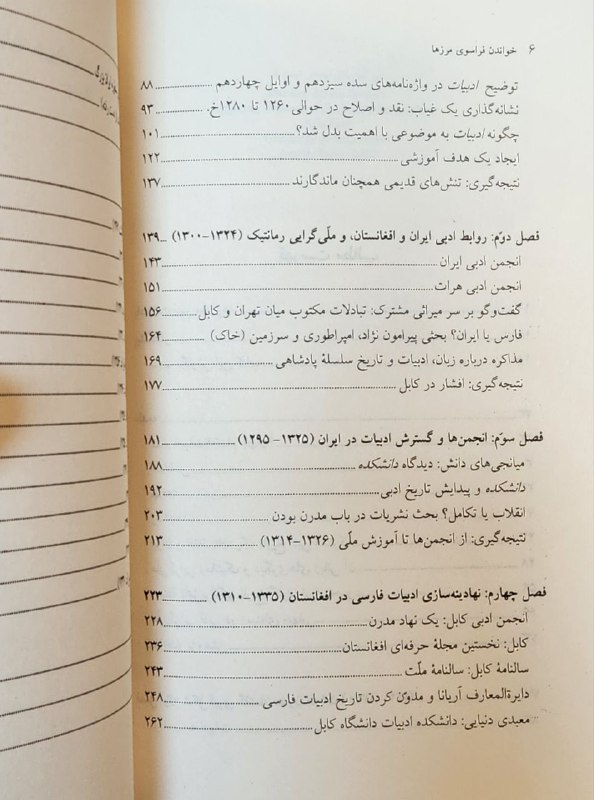 ۶ خواندن فراسوی مرزها
توضیح ادبیات در واژه‌نامه‌های سده سیزدهم و اوایل چهاردهم ۸۸
نشانه‌گذاری یک غیاب: نقد و اصلاح در حوالی ۱۲۶۰ تا ۱۲۸۰خ. ۹۳
چگونه ادبیات به موضوعی با اهمیت بدل شد؟ ۱۰۱
ایجاد یک هدف آموزشی ۱۲۲
نتیجه‌گیری: تنش‌های قدیمی همچنان ماندگارند ۱۳۷
فصل دوّم: روابط ادبی ایران و افغانستان، و ملّی‌گرایی رمانتیک (۱۳۲۴-۱۳۰۰) ۱۳۹
انجمن ادبی ایران ۱۴۳
انجمن ادبی هرات ۱۵۱
گفت‌وگو بر سر میراثی مشترک: تبادلات مکتوب میان تهران و کابل ۱۵۶
فارس یا ایران؟ بحثی پیرامون نژاد، امپراطوری و سرزمین (خاک) ۱۶۴
مذاکره درباره زبان، ادبیات و تاریخ سلسلهٔ پادشاهی ۱۶۹
نتیجه‌گیری: افشار در کابل ۱۷۷
فصل سوّم: انجمن‌ها و گسترش ادبیات در ایران (۱۳۲۵-۱۲۹۵) ۱۸۱
میانجی‌های دانش: دیدگاه دانشکده ۱۸۸
دانشکده و پیدایش تاریخ ادبی ۱۹۲
انقلاب یا تکامل؟ بحث نشریات در باب مدرن بودن ۲۰۳
نتیجه‌گیری: از انجمن‌ها تا آموزش ملّی (۱۳۲۶-۱۳۱۴) ۲۱۳
فصل چهارم: نهادینه‌سازی ادبیات فارسی در افغانستان (۱۳۳۵-۱۳۱۰) ۲۲۳
انجمن ادبی کابل: یک نهاد مدرن ۲۲۸
کابل: نخستین مجلهٔ حرفه‌ای افغانستان ۲۳۶
سالنامهٔ کابل: سالنامهٔ ملّت ۲۴۳
دایرةالمعارف آریانا و مدوّن کردن تاریخ ادبیات فارسی ۲۴۸
معبدی دنیایی: دانشکده ادبیات دانشگاه کابل ۲۶۲